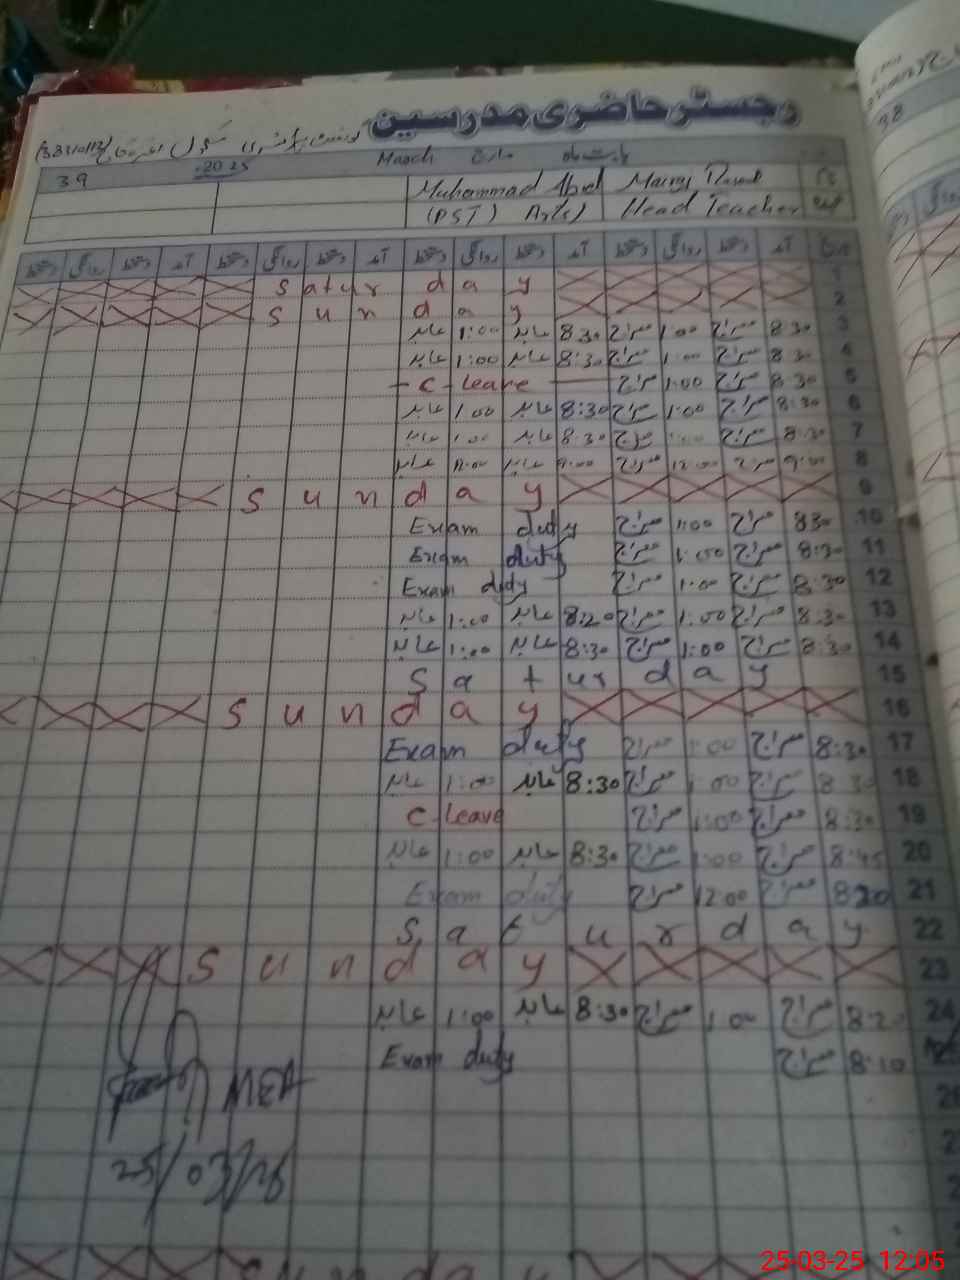 رجسٹر حاضری مدرسین
بابت ماہ مارچ March 2025
39
Muhammad Abid
(PST) Arts)
Head Teacher
تاریخ آمد دستخط روانگی دستخط آمد دستخط روانگی دستخط آمد دستخط روانگی دستخط آمد دستخط روانگی دستخط
1 Saturday
2 Sunday
3 8:30 معراج 1:00 معراج 8:30 عابد 1:00 عابد
4 8:30 معراج 1:00 معراج 8:30 عابد 1:00 عابد
5 8:30 معراج 1:00 معراج C-leave
6 8:30 معراج 1:00 معراج 8:30 عابد 1:00 عابد
7 8:30 معراج 1:00 معراج 8:30 عابد 1:00 عابد
8 9:00 معراج 12:00 معراج 9:00 عابد 12:00 عابد
9 Sunday
10 830 معراج 1:00 معراج Exam duty
11 8:30 معراج 1:00 معراج Exam duty
12 8:30 معراج 1:00 معراج Exam duty
13 8:30 معراج 1:00 معراج 8:20 عابد 1:00 عابد
14 8:30 معراج 1:00 معراج 8:30 عابد 1:00 عابد
15 Saturday
16 Sunday
17 8:30 معراج 1:00 معراج Exam duty
18 8:30 معراج 1:00 معراج 8:30 عابد 1:00 عابد
19 8:30 معراج 1:00 معراج C-leave
20 8:45 معراج 1:00 معراج 8:30 عابد 1:00 عابد
21 8:20 معراج 12:00 معراج Exam duty
22 Saturday
23 Sunday
24 8:20 معراج 1:00 معراج 8:30 عابد 1:00 عابد
25 8:10 معراج Exam duty
MEA
25/03/25
25-03-25 12:05